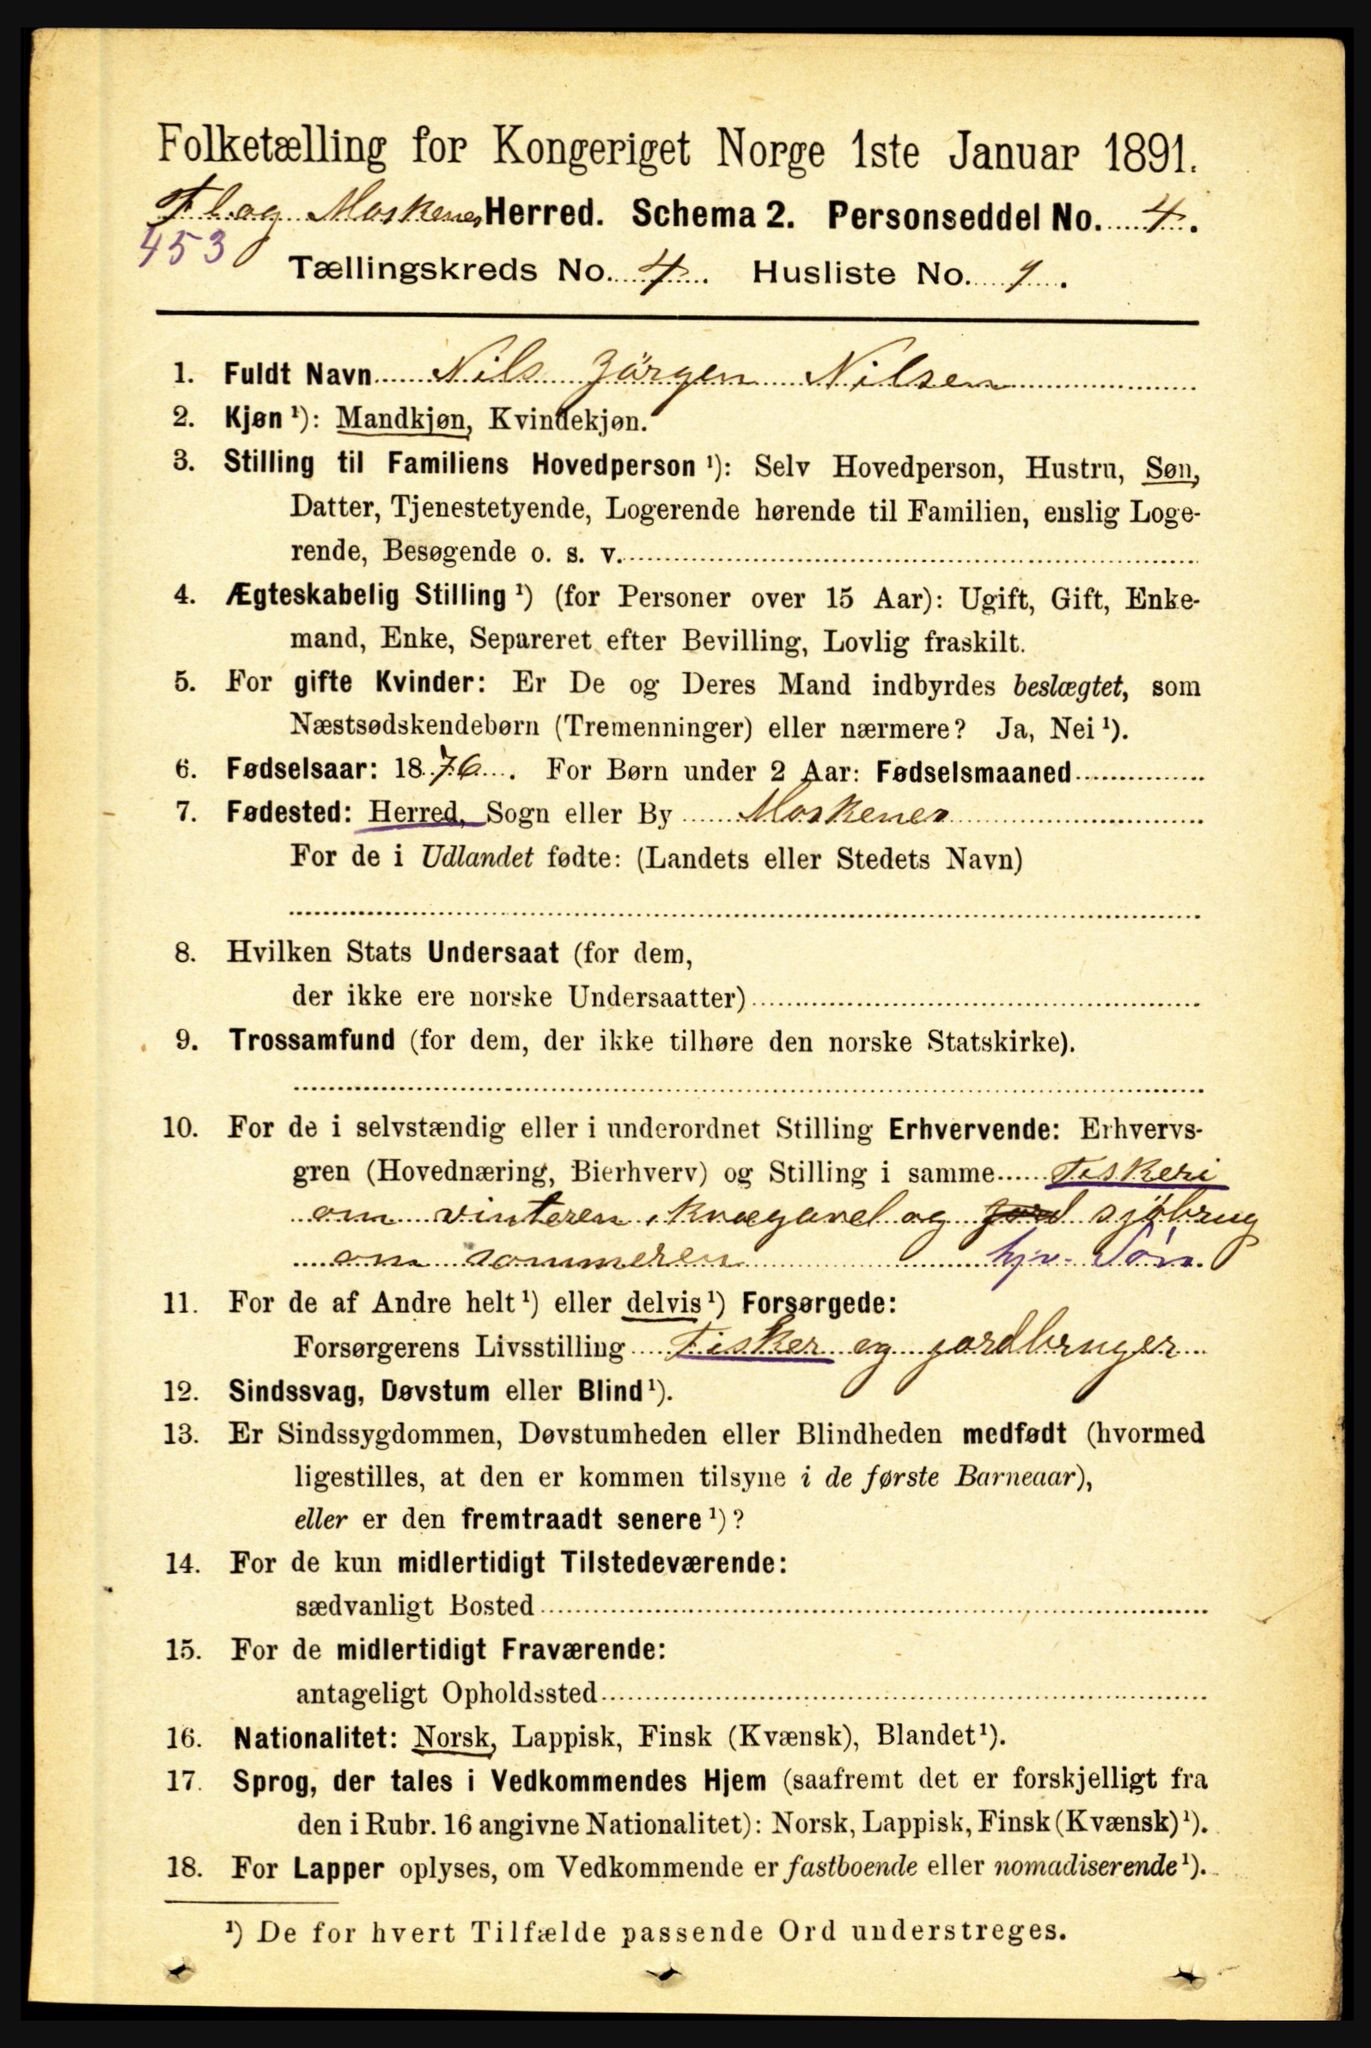 Folketælling for Kongeriget Norge 1ste Januar 1891.
Fl. og Moskenes Herred. Schema 2. Personseddel No. 4.
453
Tællingskreds No. 4. Husliste No. 1.
1. Fuldt Navn Nils Jörgen Nilsen
2. Kjøn ¹): Mandkjøn, Kvindekjøn.
3. Stilling til Familiens Hovedperson ¹): Selv Hovedperson, Hustru, Søn,
Datter, Tjenestetyende, Logerende hørende til Familien, enslig Loge-
rende, Besøgende o. s. v.
4. Ægteskabelig Stilling ¹) (for Personer over 15 Aar): Ugift, Gift, Enke-
mand, Enke, Separeret efter Bevilling, Lovlig fraskilt.
5. For gifte Kvinder: Er De og Deres Mand indbyrdes beslægtet, som
Næstsødskendebørn (Tremenninger) eller nærmere? Ja, Nei ¹).
6. Fødselsaar: 1876. For Børn under 2 Aar: Fødselsmaaned
7. Fødested: Herred, Sogn eller By Moskenes
For de i Udlandet fødte: (Landets eller Stedets Navn)
8. Hvilken Stats Undersaat (for dem,
der ikke ere norske Undersaatter)
9. Trossamfund (for dem, der ikke tilhøre den norske Statskirke).
10. For de i selvstændig eller i underordnet Stilling Erhvervende: Erhvervs-
gren (Hovednæring, Bierhverv) og Stilling i samme Fiskeri
om vinteren, kvægavel og jord sjöbrug
om sommeren hjv. Sön.
11. For de af Andre helt ¹) eller delvis ¹) Forsørgede:
Forsørgerens Livsstilling Fisker og jordbruger
12. Sindssvag, Døvstum eller Blind ¹).
13. Er Sindssygdommen, Døvstumheden eller Blindheden medfødt (hvormed
ligestilles, at den er kommen tilsyne i de første Barneaar),
eller er den fremtraadt senere ¹)?
14. For de kun midlertidigt Tilstedeværende:
sædvanligt Bosted
15. For de midlertidigt Fraværende:
antageligt Opholdssted
16. Nationalitet: Norsk, Lappisk, Finsk (Kvænsk), Blandet ¹).
17. Sprog, der tales i Vedkommendes Hjem (saafremt det er forskjelligt fra
den i Rubr. 16 angivne Nationalitet): Norsk, Lappisk, Finsk (Kvænsk) ¹).
18. For Lapper oplyses, om Vedkommende er fastboende eller nomadiserende ¹).
¹) De for hvert Tilfælde passende Ord understreges.